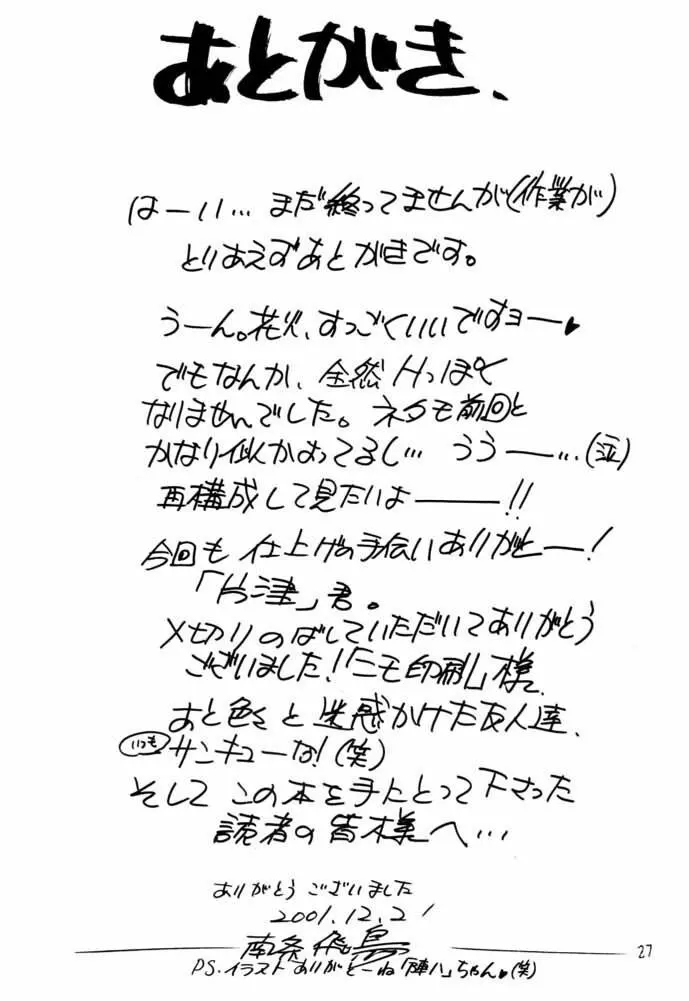 あとがき、
はーい… まだ終ってませんが(作業が)
とりあえずあとがきです。
うーん。花火、すっごくいいですョー♥
でもなんか、全然Hっぽく
なりませんでした。ネタも前回と
かなり似かよってるし… うう——…(泣)
再構成して見たいよ———!!
今回も仕上げの手伝いありがとー!
「片津」君。
〆切りのばしていただいてありがとう
ございました!「ニモ印刷」様、
あと色々と迷惑かけた友人達、
いつもサンキューな!(笑)
そして この本を手にとって下さった
読者の皆様へ…
ありがとうございました
2001.12.21
南条飛鳥
27
PS.イラスト ありがとーね「陣八」ちゃん♥(笑)